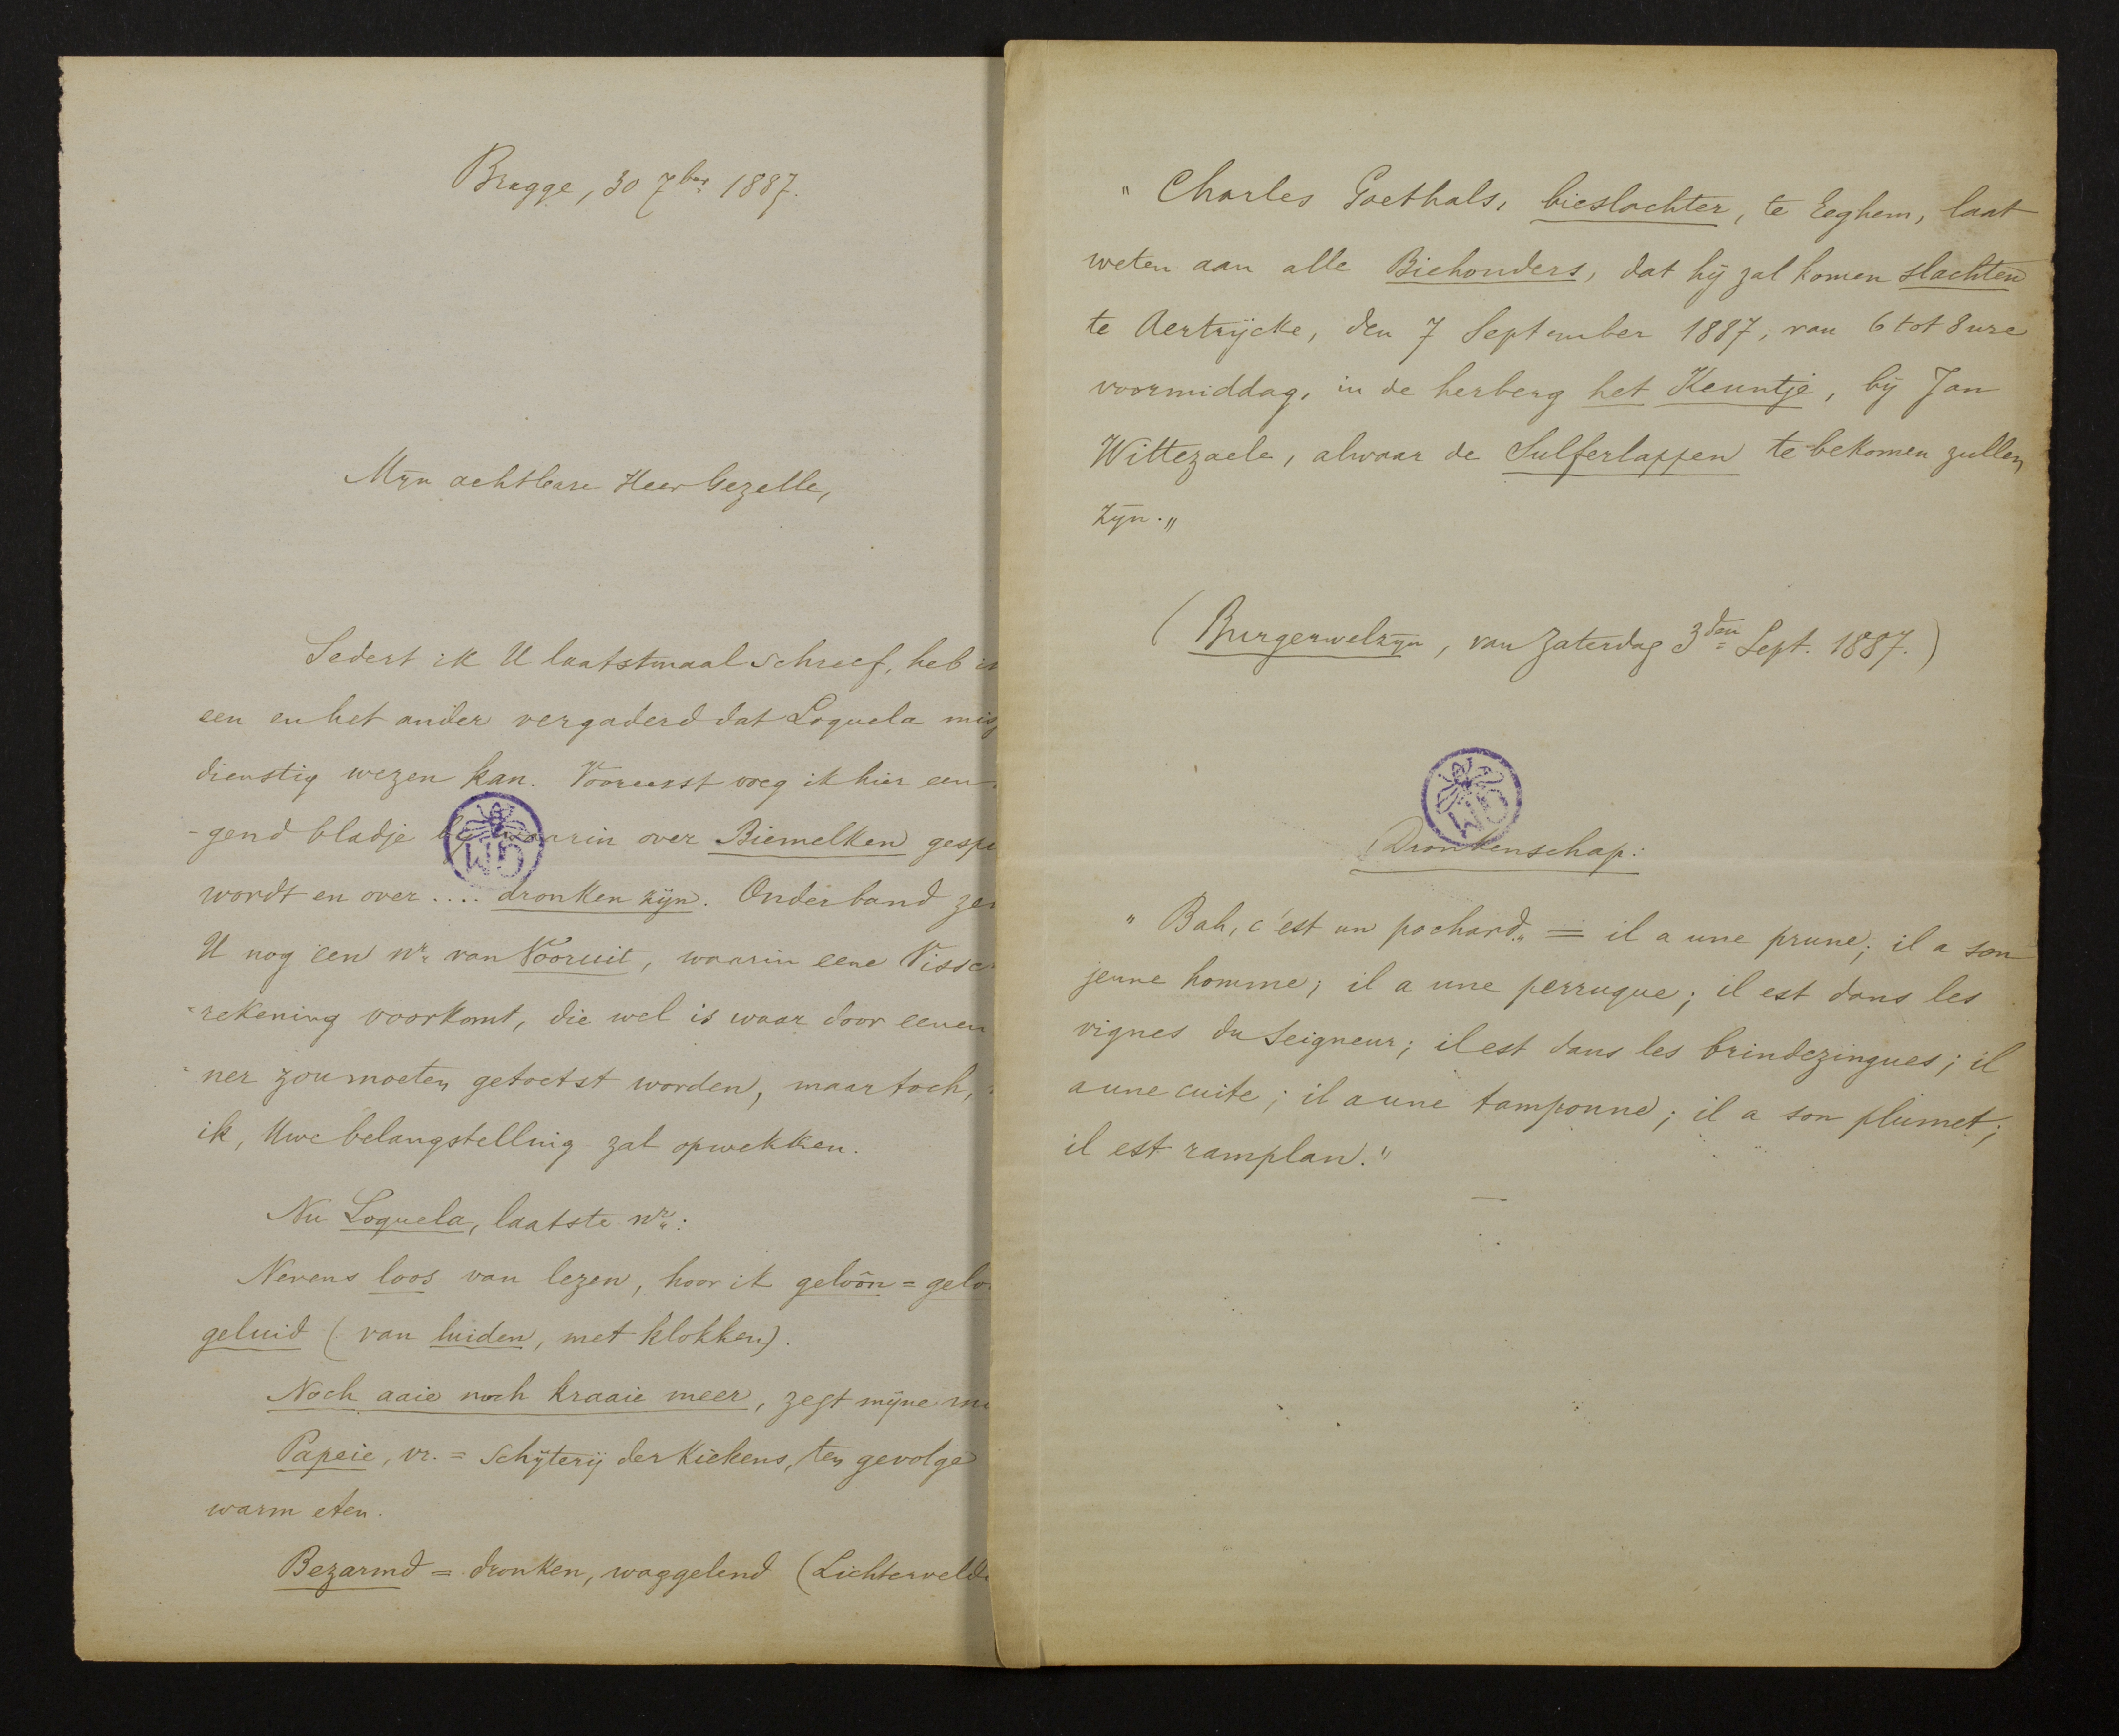 Brugge, 30 7ber 1887.
Mijn achtbare Heer Gezelle,
Sedert ik U laatstmaal schreef, heb
een en het ander vergaderd dat Loquela
dienstig wezen kan. Vooreerst voeg ik hier een
-gend bladje bij waarin over Biemelken
wordt en over .... dronken zijn. Onderband
U nog een nr. van Vooruit, waarin eene
-rekening voorkomt, die wel is waar door eenen
-ner zou moeten getoetst worden, maar toch,
ik, Uwe belangstelling zal opwekken.
Nu Loquela, laatste nr.:
Nevens loos van lezen, hoor ik geloôn =
geluid (van luiden, met klokken).
Noch aaie noch kraaie meer, zegt mijne
Papeie, vr. = schijterij der kiekens, ten gevolge
warm eten.
Bezarmd = dronken, waggelend (Lichtervelde
" Charles Goethals, bieslachter, te Eeghem, laat
weten aan alle Biehouders, dat hij zal komen slachten
te Aertrijcke, den 7 September 1887, van 6 tot 8 ure
voormiddag, in de herberg het Keuntje, bij Jan
Wittezaele, alwaar de Sulferlappen te bekomen zullen
zijn."
(Burgerwelzijn, van Zaterdag 3den Sept. 1887.)
WG
WG
Dronkenschap:
" Bah, c'est un pochard" = il a une prune; il a son
jeune homme; il a une perruque; il est dans les
vignes du Seigneur; il est dans les brindezingues; il
a une cuite; il a une tamponne; il a son plumet;
il est ramplan."